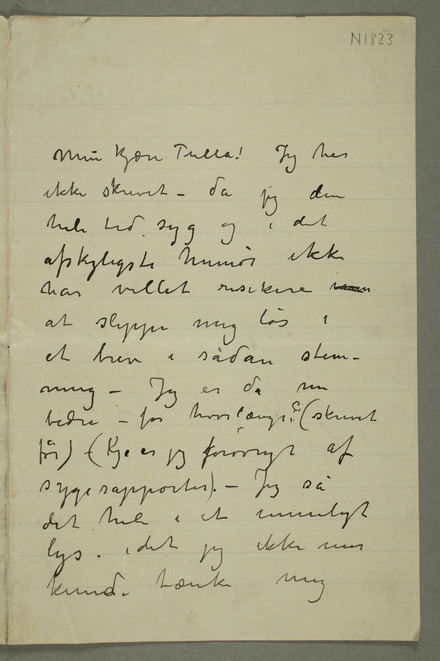 N1823
Min kjære Tulla! Jeg har
ikke skrevet – da jeg den
hele tid syg og i det
afskyligste humør ikke
har villet risikere
at slippe mig løs i
et brev i sådan stem-
ning – Jeg er da nu
bedre – for hvorlænge? (skrevet
før) – jeg forøvrigt af
sygerapporter). – Jeg så
det hele i et umuligt
lys. idet jeg ikke mer
kunde tænke mig